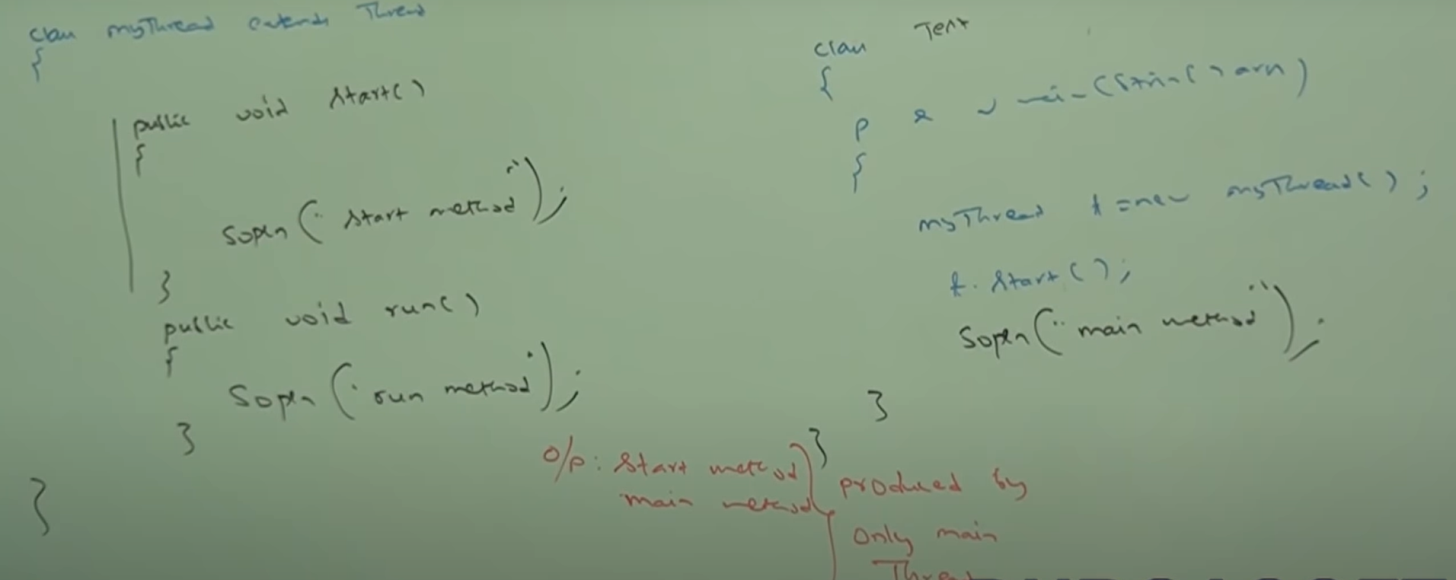 class myThread extends Thread
{
public void start()
{
Sopln("start method");
}
public void run()
{
Sopln("run method");
}
}
class Test
{
p s v main(String[] args)
{
myThread t = new myThread();
t.start();
Sopln("main method");
}
}
o/p: start method
main method
produced by
only main
Thread